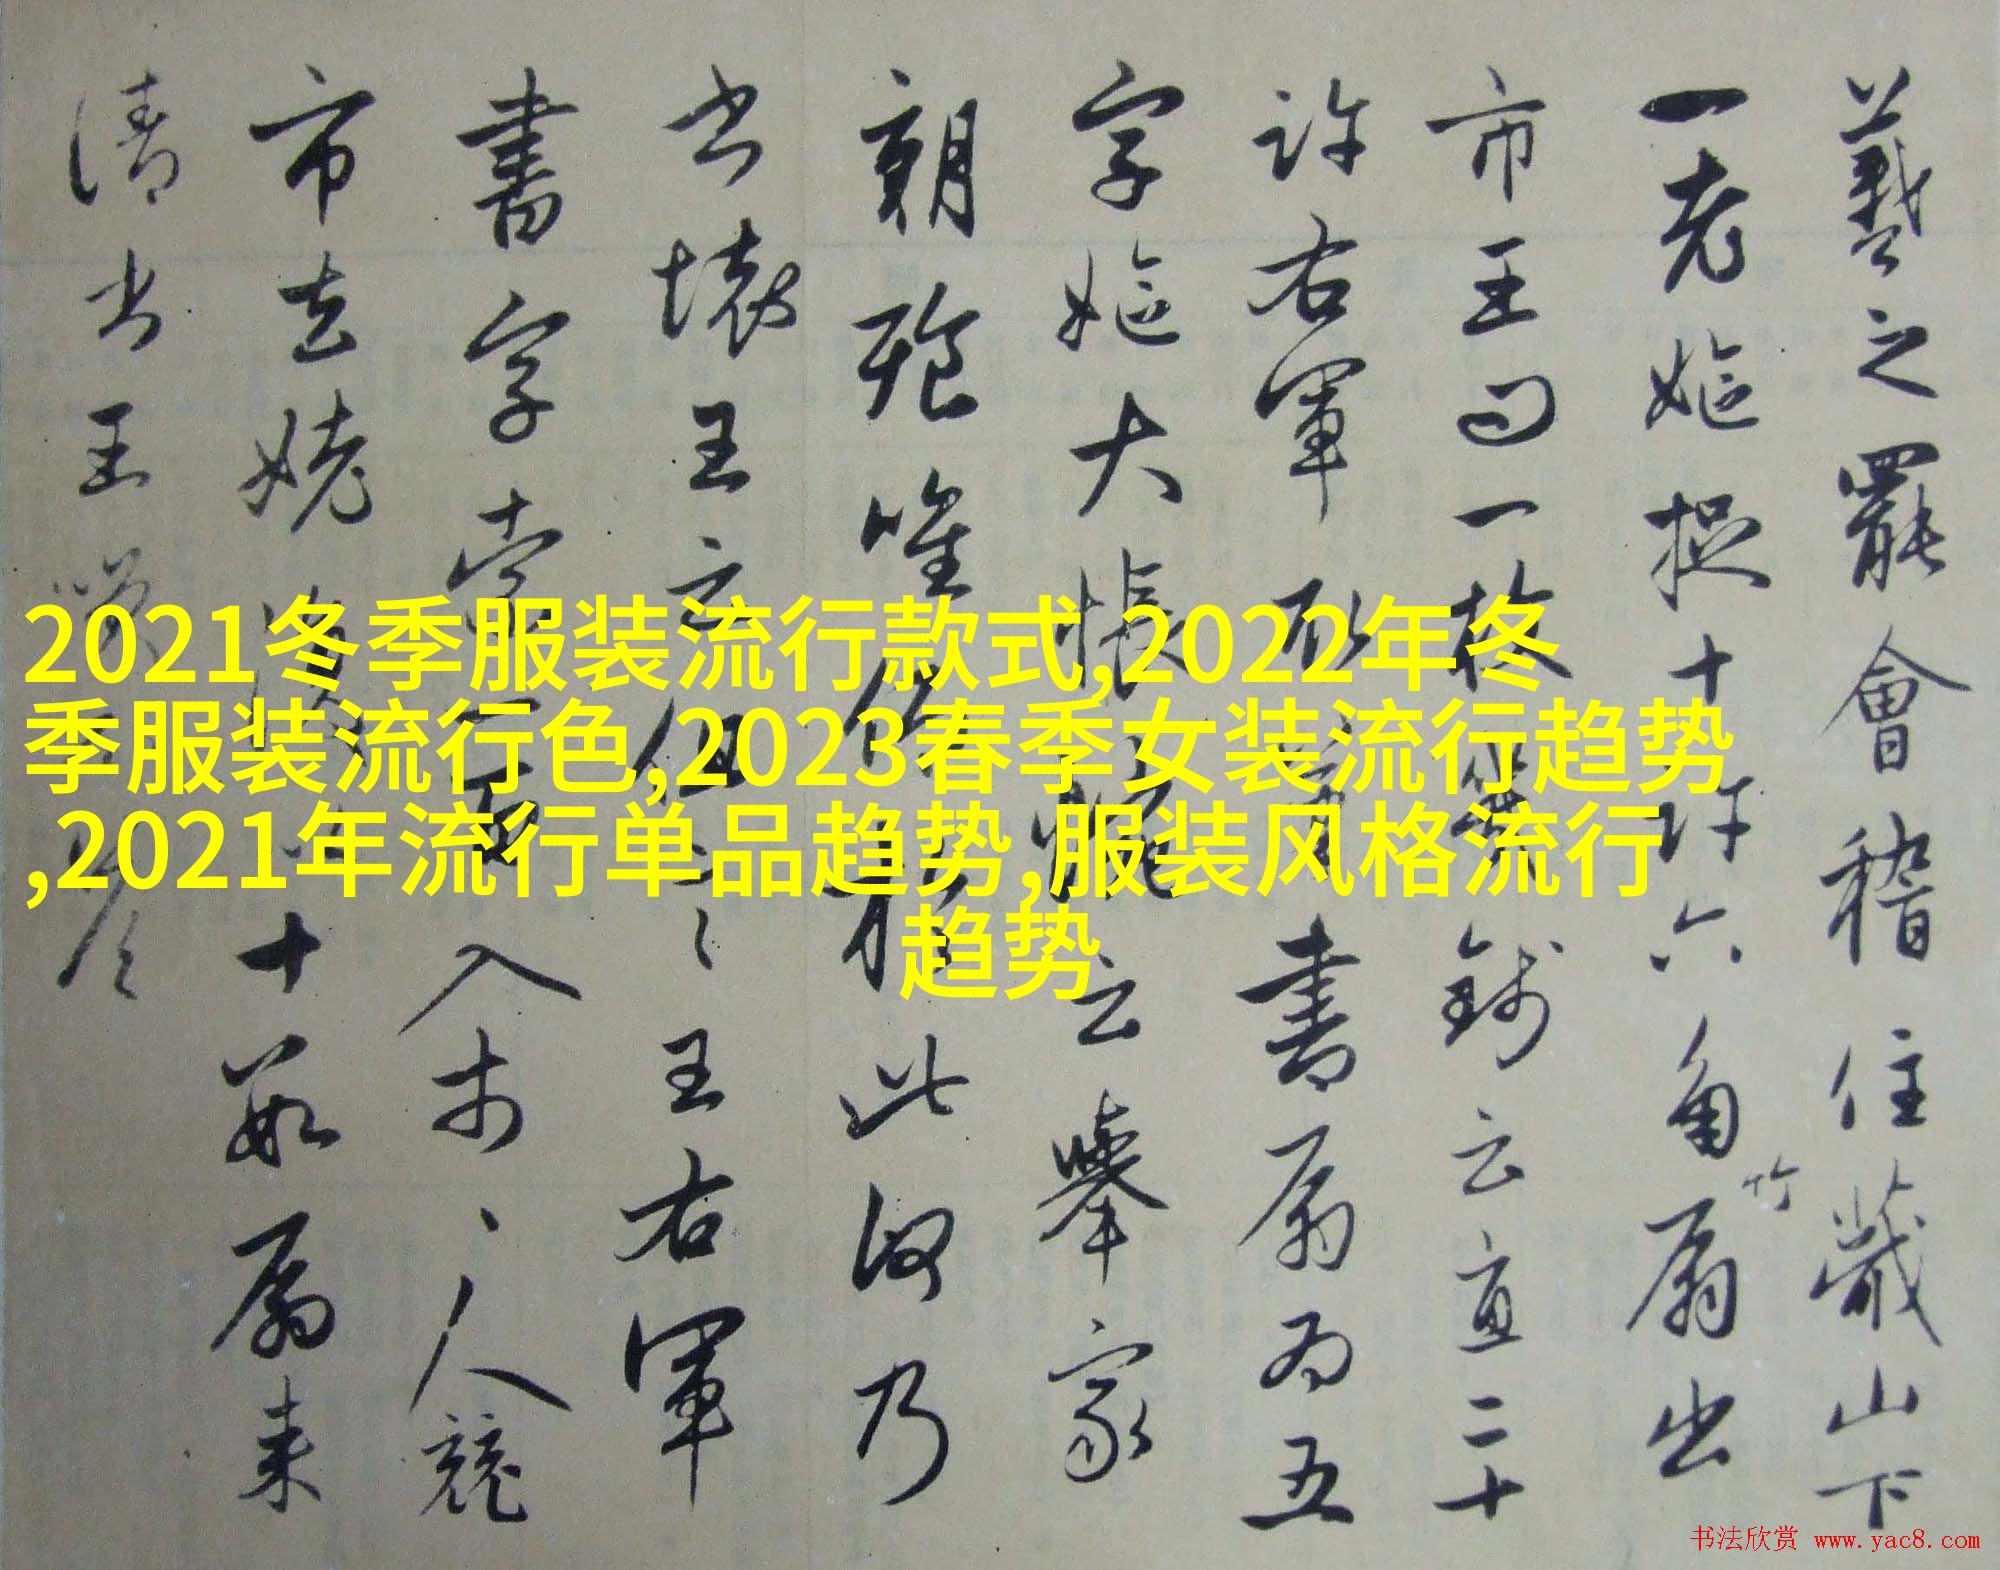 羲之罷會稽住蕺山下
一老嫗捉十許六角竹扇出
市王問一枚幾錢云直二十
許右軍取筆書扇扇為五
字嫗大悵惋云舉家
朝飧唯仰於此何乃
書壞王云但言王右軍
書字索一百入市市人競
市去姥復以十數扇來
請書王笑不答
2021冬季服装流行款式,2022年冬
季服装流行色,2023春季女装流行趋势
,2021年流行单品趋势,服装风格流行
趋势
书法欣赏 www.yac8.com